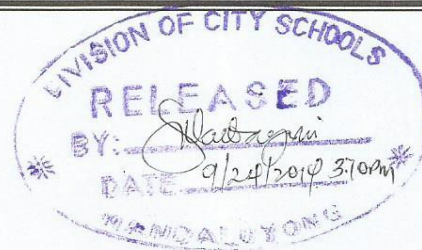 DIVISION OF CITY SCHOOLS
RELEASED
BY:
DATE 9/24/2014 3:10pm
MANDALUYONG